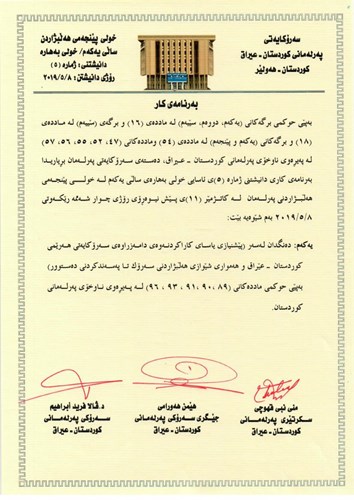 سەرۆکایەتی
پەرلەمانی کوردستان - عیراق
کوردستان - هەولێر
خولی پێنجەمی هەڵبژاردن
ساڵی یەکەم/ خولی بەهارە
دانیشتنی: ژمارە (٥)
ڕۆژی دانیشتن: ٢٠١٩/٥/٨
بەرنامەی کار
بەپێی حوکمی برگەکانی (یەکەم، دووەم، سێیەم) لە ماددەی (١٦) و برگەی (سێیەم) لە ماددەی
(١٨) و برگەکانی (یەکەم و پێنجەم) لە ماددەی (٥٤) وماددەکانی (٤٧، ٥٢، ٥٥، ٥٦، ٥٧)
لە پەیڕەوی ناوخۆی پەرلەمانی کوردستان - عیراق، دەستەی سەرۆکایەتی پەرلەمان بڕیاریدا
بەرنامەی کاری دانیشتنی ژمارە (٥)ی ئاسایی خولی بەهارەی ساڵی یەکەم لە خولی پێنجەمی
هەڵبژاردنی پەرلەمان لە کاتژمێر (١١)ی پێش نیوەڕۆی ڕۆژی چوار شەممە ڕێکەوتی
٢٠١٩/٥/٨ بەم شێوەیە بێت:
یەکەم: دەنگدان لەسەر (پێشنیازی یاسای کاراکردنەوەی دامەزراوەی سەرۆکایەتی هەرێمی
کوردستان - عێراق و هەمواری شێوازی هەڵبژاردنی سەرۆک تا پەسەندکردنی دەستوور)
بەپێی حوکمی ماددەکانی (٨٩، ٩٠، ٩١، ٩٣، ٩٦) لە پەیڕەوی ناوخۆی پەرلەمانی
کوردستان.
منی نبی قهوچی
سکرتێری پەرلەمانی
کوردستان - عیراق
هێمن هەورامی
جێگری سەرۆکی پەرلەمانی
کوردستان - عیراق
د. ڤالا فرید ابراهیم
سەرۆکی پەرلەمانی
کوردستان - عیراق